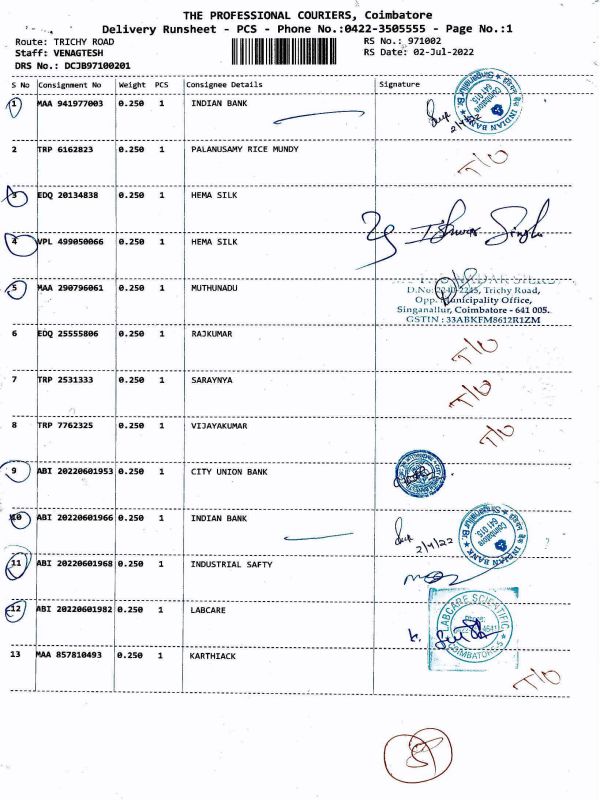 THE PROFESSIONAL COURIERS, Coimbatore
Delivery Runsheet - PCS - Phone No.:0422-3505555 - Page No.:1
Route: TRICHY ROAD RS No.: 971002
Staff: VENAGTESH RS Date: 02-Jul-2022
DRS No.: DCJB97100201
S No Consignment No Weight PCS Consignee Details Signature
1 MAA 941977003 0.250 1 INDIAN BANK
INDIAN BANK Coimbatore 641 015 Singanallur Br.
2 TRP 6162823 0.250 1 PALANUSAMY RICE MUNDY T/O
3 EDQ 20134838 0.250 1 HEMA SILK
4 VPL 499050066 0.250 1 HEMA SILK
5 MAA 290796061 0.250 1 MUTHUNADU
D.No: 2245, Trichy Road,
Opp. Municipality Office,
Singanallur, Coimbatore - 641 005.
GSTIN : 33ABKFM8612R1ZM
6 EDQ 25555806 0.250 1 RAJKUMAR T/O
7 TRP 2531333 0.250 1 SARAYNYA T/O
8 TRP 7762325 0.250 1 VIJAYAKUMAR T/O
9 ABI 20220601953 0.250 1 CITY UNION BANK
10 ABI 20220601966 0.250 1 INDIAN BANK
INDIAN BANK Coimbatore 641 015 Singanallur Br.
11 ABI 20220601968 0.250 1 INDUSTRIAL SAFTY
12 ABI 20220601982 0.250 1 LABCARE
LABCARE SCIENTIFIC COIMBATORE-5
13 MAA 857810493 0.250 1 KARTHIACK T/O